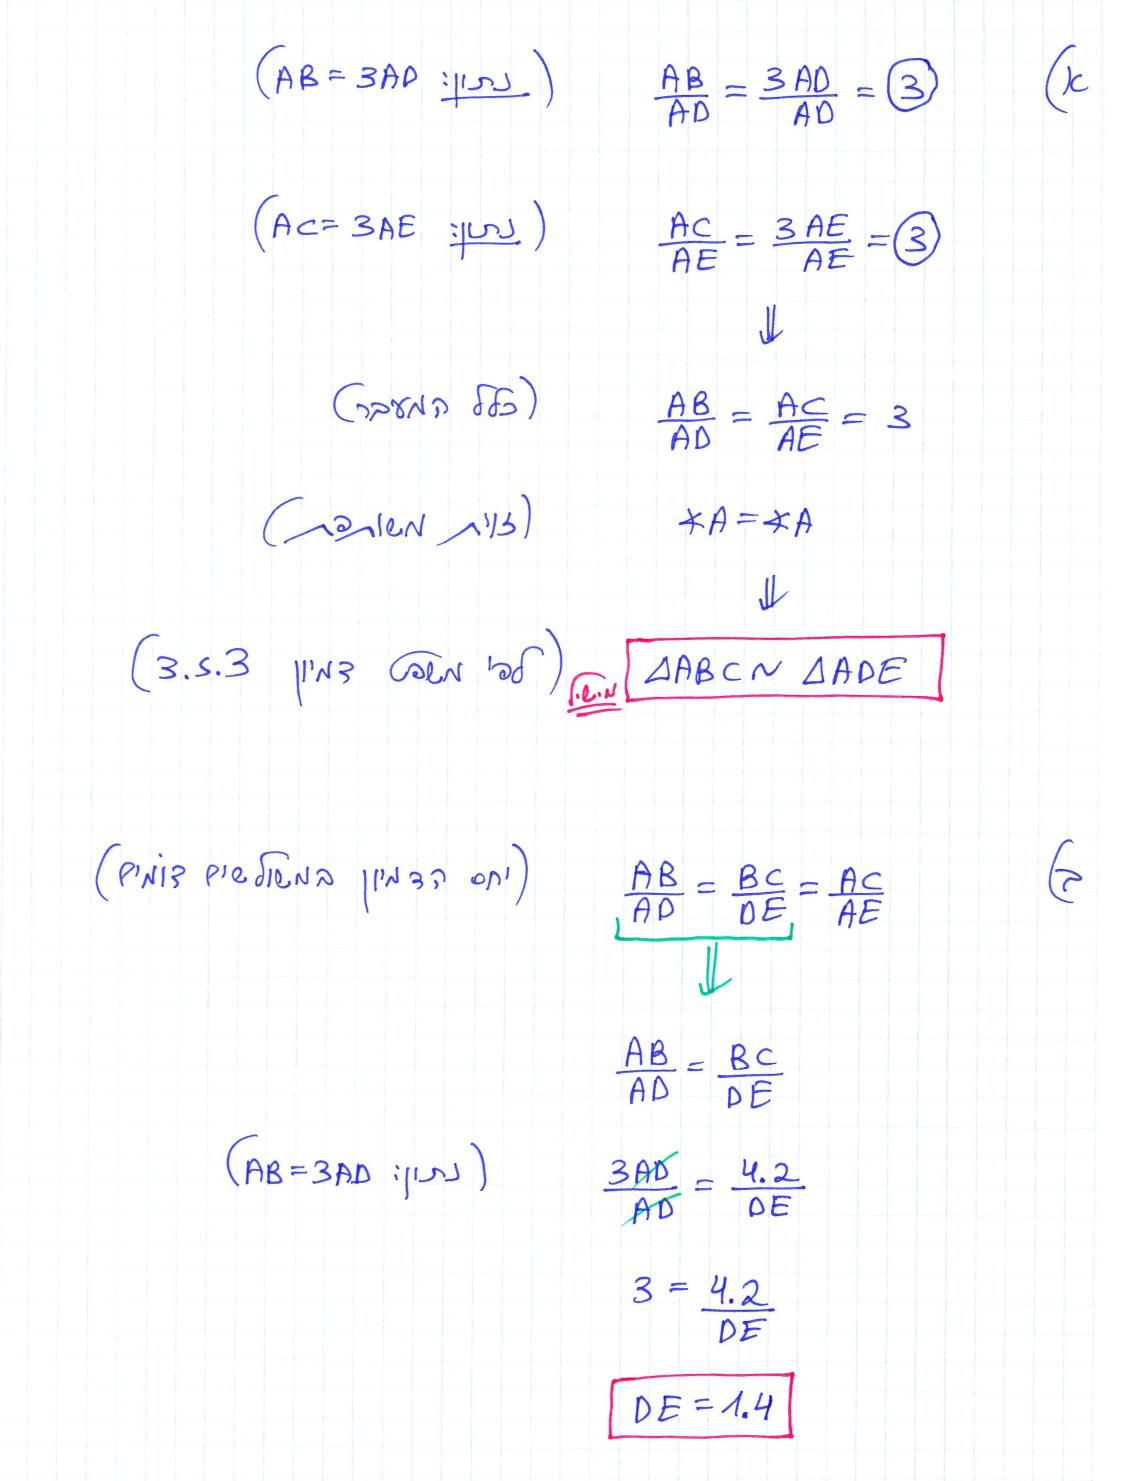 א) AB/AD = 3AD/AD = 3 (נתון: AB = 3AD)
AC/AE = 3AE/AE = 3 (נתון: AC = 3AE)
⇓
AB/AD = AC/AE = 3 (כלל המעבר)
∢A = ∢A (זווית משותפת)
⇓
ΔABC ~ ΔADE מ.ש.ל (לפי משפט דמיון צ.ז.צ)
ב) AB/AD = BC/DE = AC/AE (יחס הדמיון במשולשים דומים)
⇓
AB/AD = BC/DE
3AD/AD = 4.2/DE (נתון: AB = 3AD)
3 = 4.2/DE
DE = 1.4